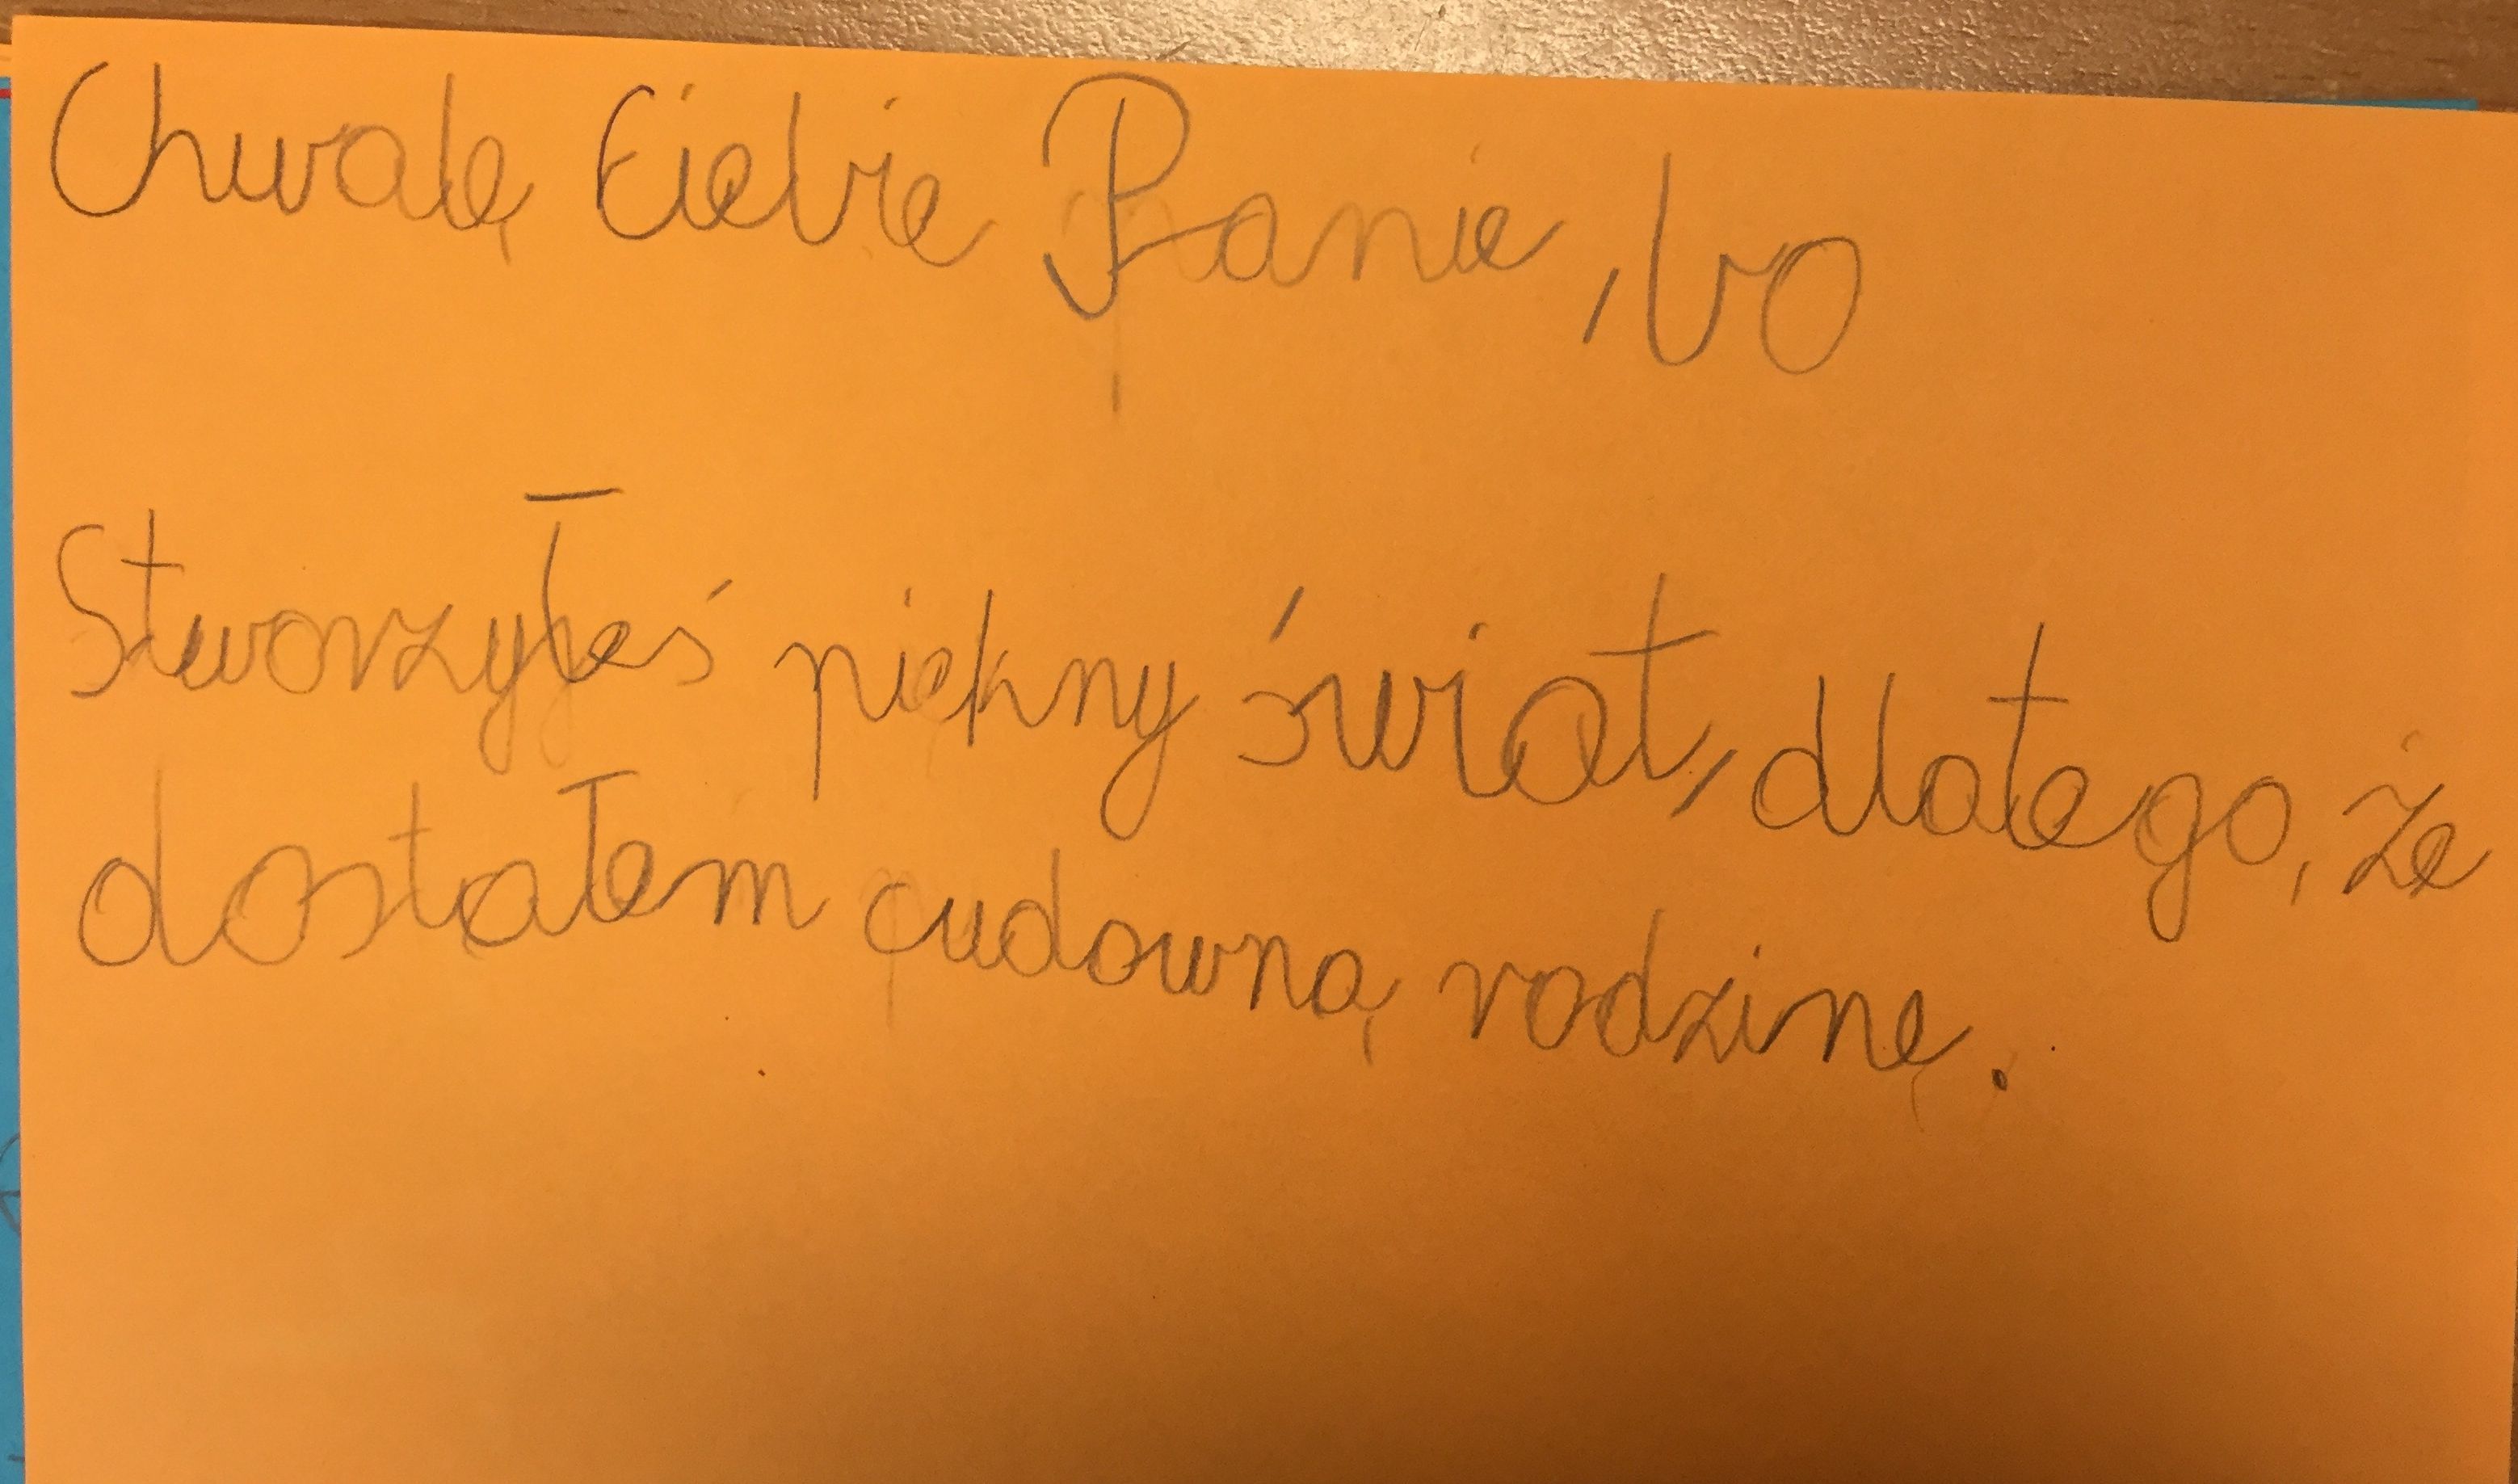 Chwalę Ciebie Panie, bo
Stworzyłeś piękny świat, dlatego, że
dostałem cudowną rodzinę.